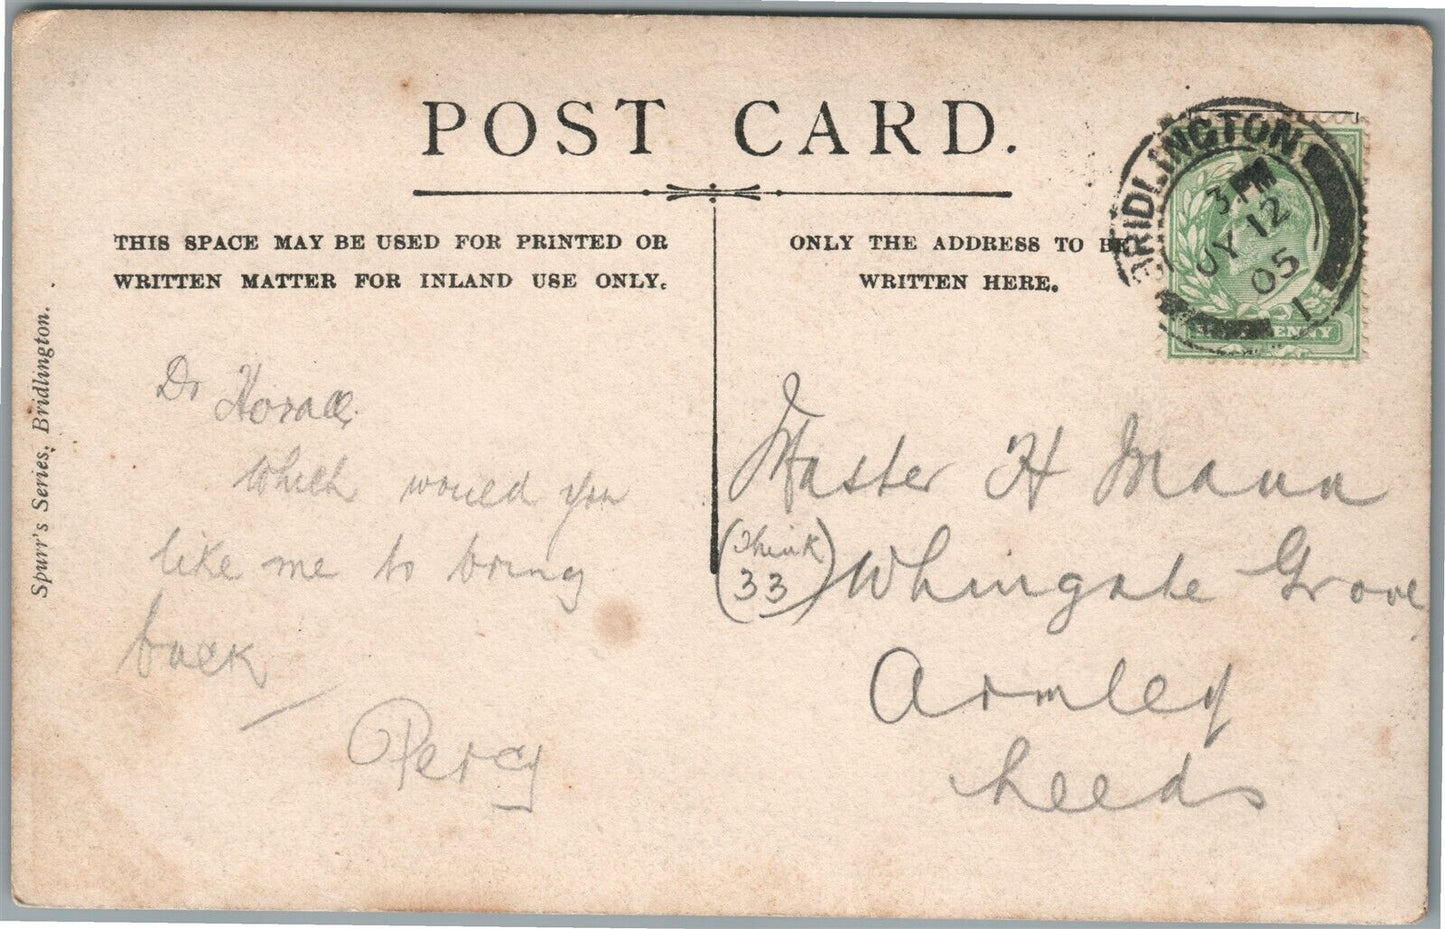 POST CARD.
THIS SPACE MAY BE USED FOR PRINTED OR
WRITTEN MATTER FOR INLAND USE ONLY.
ONLY THE ADDRESS TO BE
WRITTEN HERE.
BRIDLINGTON
3 PM
JY 12
05
1
PENNY
Spurr's Series, Bridlington.
Dr Horace,
Which would you
like me to bring
back
Percy
Master H Mann
(Think
33) Whingate Grove
Armley
Leeds